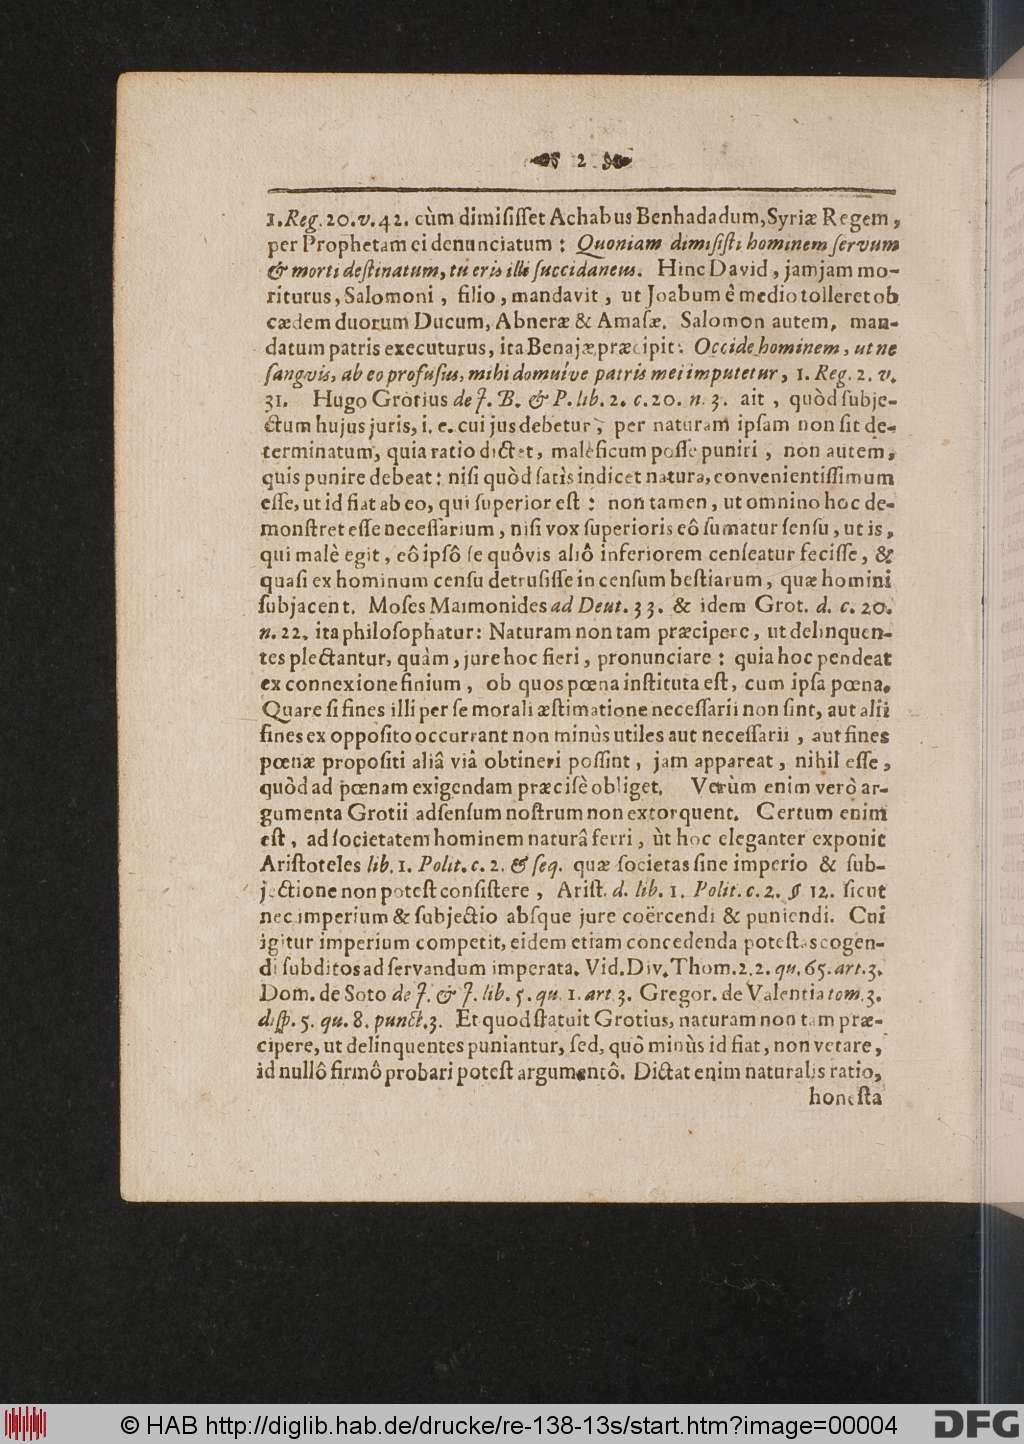 2
1. Reg. 20. v. 42. cùm dimisisset Achabus Benhadadum, Syriæ Regem,
per Prophetam ei denunciatum: Quoniam dimisisti hominem servum
& morti destinatum, tu eris illi succidaneus. Hinc David, jamjam mo-
riturus, Salomoni, filio, mandavit, ut Joabum è medio tolleret ob
cædem duorum Ducum, Abneræ & Amasæ. Salomon autem, man-
datum patris executurus, ita Benajæ præcipit: Occide hominem, ut ne
sangvis, ab eo profusus, mihi domuíve patris mei imputetur, 1. Reg. 2. v.
31. Hugo Grotius de J. B. & P. lib. 2. c. 20. n. 3. ait, quòd subje-
ctum hujus juris, i. e. cui jus debetur, per naturam ipsam non sit de-
terminatum, quia ratio dictet, maleficum posse puniri, non autem,
quis punire debeat: nisi quòd satìs indicet natura, convenientissimum
esse, ut id fiat ab eo, qui superior est: non tamen, ut omnino hoc de-
monstret esse necessarium, nisi vox superioris eô sumatur sensu, ut is,
qui malè egit, eô ipsô se quôvis aliô inferiorem censeatur fecisse, &
quasi ex hominum censu detrusisse in censum bestiarum, quæ homini
subjacent. Moses Maimonides ad Deut. 33. & idem Grot. d. c. 20.
n. 22. ita philosophatur: Naturam non tam præcipere, ut delinquen-
tes plectantur, quàm, jure hoc fieri, pronunciare: quia hoc pendeat
ex connexione finium, ob quos pœna instituta est, cum ipsa pœna.
Quare si fines illi per se morali æstimatione necessarii non sint, aut alii
fines ex opposito occurrant non minùs utiles aut necessarii, aut fines
pœnæ propositi aliâ viâ obtineri possint, jam appareat, nihil esse,
quòd ad pœnam exigendam præcisè obliget. Verùm enim verò ar-
gumenta Grotii adsensum nostrum non extorquent. Certum enim
est, ad societatem hominem naturâ ferri, ùt hoc eleganter exponit
Aristoteles lib. 1. Polit. c. 2. & seq. quæ societas sine imperio & sub-
jectione non potest consistere, Arist. d. lib. 1. Polit. c. 2. § 12. sicut
nec imperium & subjectio absque jure coërcendi & puniendi. Cui
igitur imperium competit, eidem etiam concedenda potestas cogen-
di subditos ad servandum imperata. Vid. Div. Thom. 2.2. qu. 65. art. 3.
Dom. de Soto de J. & J. lib. 5. qu. 1. art. 3. Gregor. de Valentia tom. 3.
disp. 5. qu. 8. punct. 3. Et quod statuit Grotius, naturam non tam præ-
cipere, ut delinquentes puniantur, sed, quò minùs id fiat, non vetare,
id nullô firmô probari potest argumentô. Dictat enim naturalis ratio,
honesta
© HAB http://diglib.hab.de/drucke/re-138-13s/start.htm?image=00004
DFG